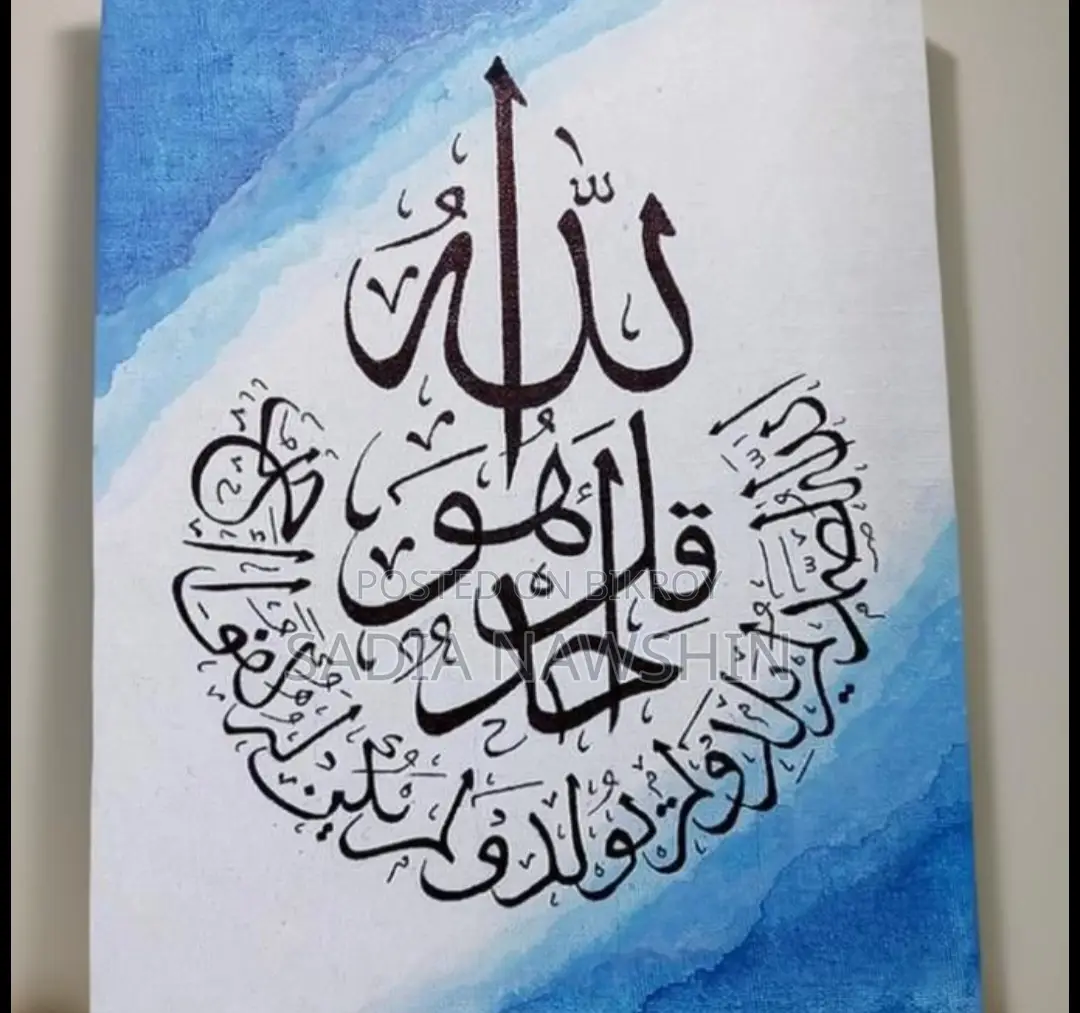 قُلْ هُوَ اللّٰهُ أَحَدٌ
اللّٰهُ الصَّمَدُ لَمْ يَلِدْ وَلَمْ يُولَدْ وَلَمْ يَكُنْ لَهُ كُفُوًا أَحَدٌ
POSTED ON BIKROY
SADIA NAWSHIN